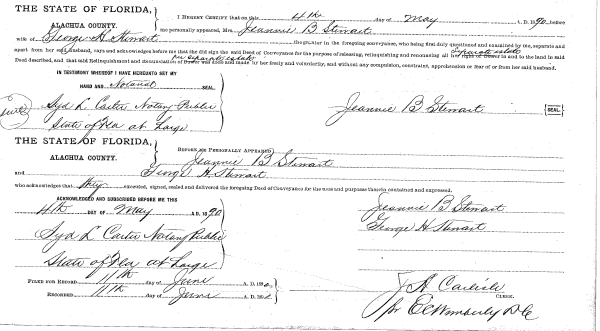 THE STATE OF FLORIDA,
ALACHUA COUNTY.
I HEREBY CERTIFY that on this 4th day of May A. D. 1890, before
me personally appeared, Mrs. Jeannie B Stewart
wife of George H Stewart the grantor in the foregoing conveyance, who being first duly questioned and examined by me, separate and
separate estate
apart from her said husband, says and acknowledges before me that she did sign the said Deed of Conveyance for the purpose of releasing, relinquishing and renouncing all her right of Dower in and to the land in said
per separate estate
Deed described, and that said Relinquishment and Renunciation of Dower was done and made by her freely and voluntarily, and without any compulsion, constraint, apprehension or fear of or from her said husband.
IN TESTIMONY WHEREOF I HAVE HEREUNTO SET MY
HAND AND Notarial SEAL.
Syd L. Carter Notary Public
State of Fla at Large
Jeannie B Stewart SEAL.
THE STATE OF FLORIDA,
ALACHUA COUNTY.
BEFORE ME PERSONALLY APPEARED
Jeannie B Stewart
and George H Stewart
who acknowledges that they executed, signed, sealed and delivered the foregoing Deed of Conveyance for the uses and purposes therein contained and expressed.
ACKNOWLEDGED AND SUBSCRIBED BEFORE ME THIS
4th DAY OF May A.D. 1890
Jeannie B Stewart
George H Stewart
Syd L Carter Notary Public
State of Fla at Large
FILED FOR RECORD 11th day of June A. D. 1890
RECORDED 11th day of June A. D. 1890
J A Carlisle
CLERK.
pr E C Wimberly D C